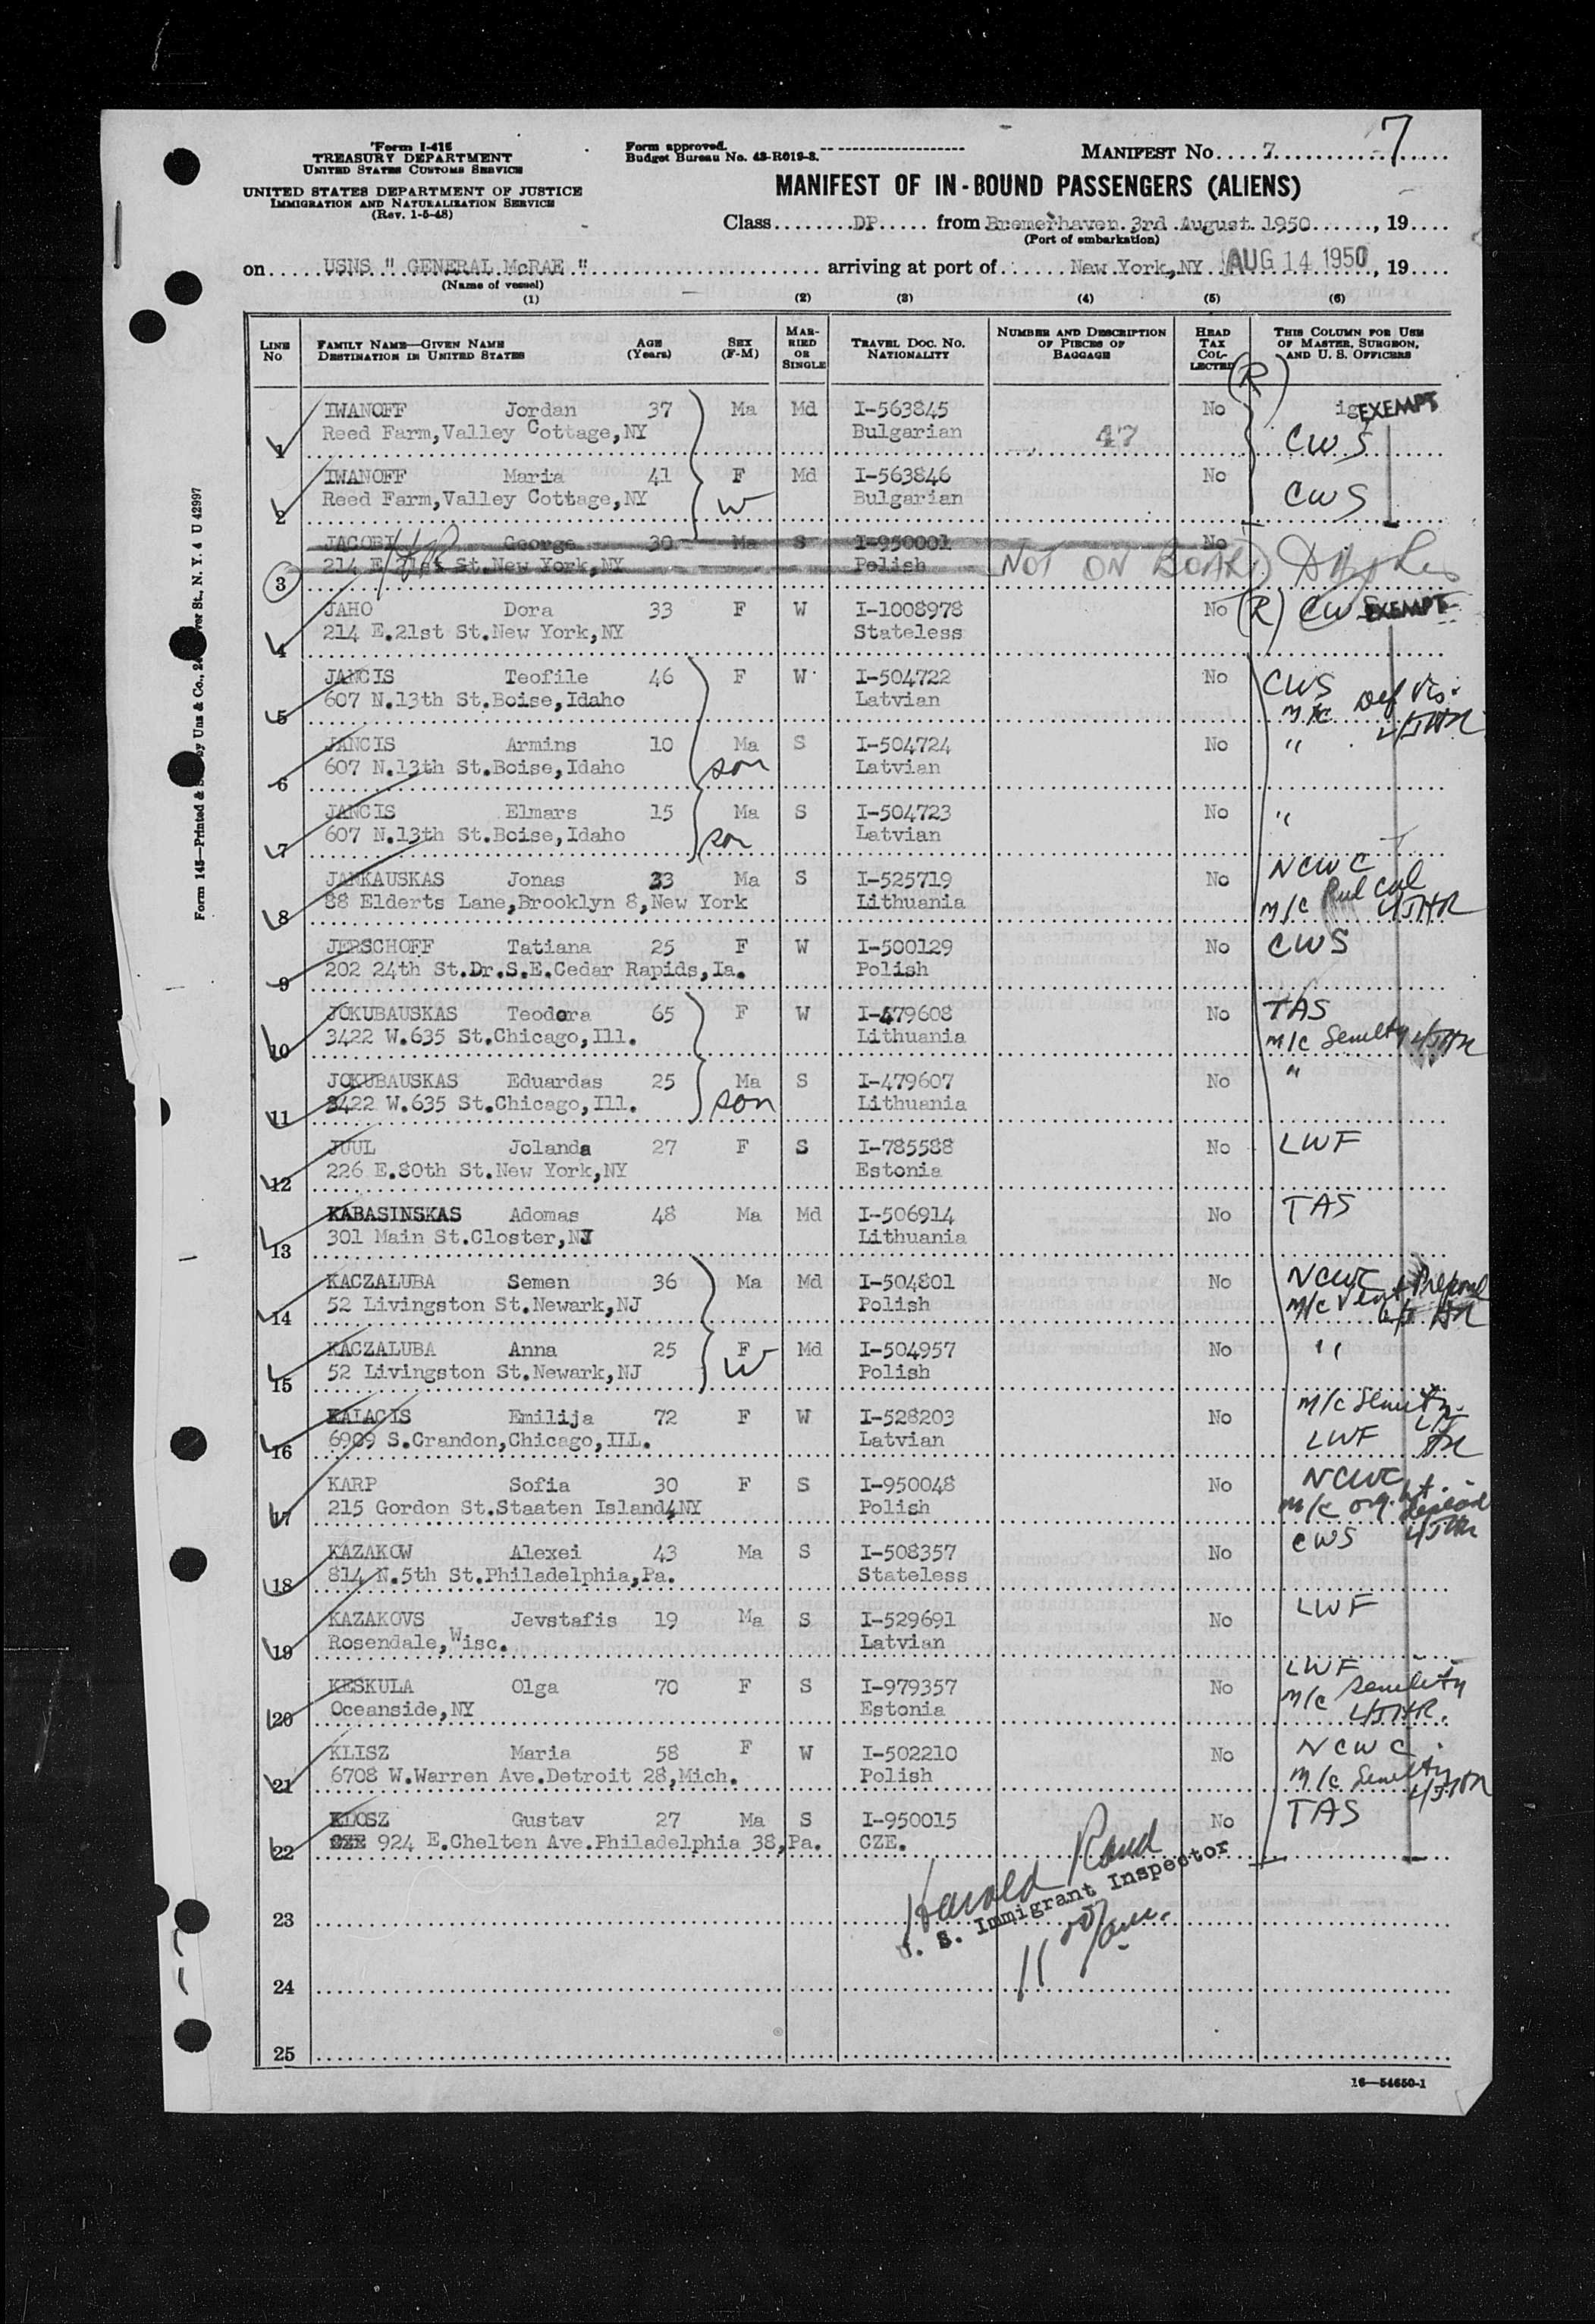 Form I-415
TREASURY DEPARTMENT
UNITED STATES CUSTOMS SERVICE
UNITED STATES DEPARTMENT OF JUSTICE
IMMIGRATION AND NATURALIZATION SERVICE
(Rev. 1-5-48)
Form approved.
Budget Bureau No. 43-R019-3.
MANIFEST No. 7 7
MANIFEST OF IN-BOUND PASSENGERS (ALIENS)
Class DP from Bremerhaven 3rd August 1950, 19
(Port of embarkation)
on USNS " GENERAL McRAE " arriving at port of New York,NY AUG 14 1950, 19
(Name of vessel)
(1) (2) (3) (4) (5) (6)
LINE No FAMILY NAME—GIVEN NAME DESTINATION IN UNITED STATES AGE (Years) SEX (F-M) MARRIED OR SINGLE TRAVEL DOC. NO. NATIONALITY NUMBER AND DESCRIPTION OF PIECES OF BAGGAGE HEAD TAX COLLECTED THIS COLUMN FOR USE OF MASTER, SURGEON, AND U. S. OFFICERS
(R)
IWANOFF Jordan 37 Ma Md I-563845 No EXEMPT
1 Reed Farm,Valley Cottage,NY Bulgarian 47 CWS
IWANOFF Maria 41 F Md I-563846 No
2 Reed Farm,Valley Cottage,NY W Bulgarian CWS
JACOBI George 30 Ma S I-950001 No
3 214 E 21st St.New York,NY Polish NOT ON BOARD
JAHO Dora 33 F W I-1008978 No (R) CWS EXEMPT
4 214 E.21st St.New York,NY Stateless
JANCIS Teofile 46 F W I-504722 No CWS
5 607 N.13th St.Boise,Idaho Latvian m/c Def Vis.
JANCIS Armins 10 Ma S I-504724 No "
6 607 N.13th St.Boise,Idaho son Latvian
JANCIS Elmars 15 Ma S I-504723 No "
7 607 N.13th St.Boise,Idaho son Latvian
JANKAUSKAS Jonas 33 Ma S I-525719 No NCWC
8 88 Elderts Lane,Brooklyn 8,New York Lithuania m/c
JERSCHOFF Tatiana 25 F W I-500129 No CWS
9 202 24th St.Dr.S.E.Cedar Rapids,Ia. Polish
JOKUBAUSKAS Teodora 65 F W I-479608 No TAS
10 3422 W.635 St.Chicago,Ill. Lithuania m/c Senility
JOKUBAUSKAS Eduardas 25 Ma S I-479607 No "
11 3422 W.635 St.Chicago,Ill. son Lithuania
JUUL Jolanda 27 F S I-785588 No LWF
12 226 E.80th St.New York,NY Estonia
KABASINSKAS Adomas 48 Ma Md I-506914 No TAS
13 301 Main St.Closter,NJ Lithuania
KACZALUBA Semen 36 Ma Md I-504801 No NCWC
14 52 Livingston St.Newark,NJ Polish m/c
KACZALUBA Anna 25 F Md I-504957 No "
15 52 Livingston St.Newark,NJ W Polish
KALACIS Emilija 72 F W I-528203 No m/c Senility
16 6909 S.Crandon,Chicago,ILL. Latvian LWF
KARP Sofia 30 F S I-950048 No NCWC
17 215 Gordon St.Staaten Island4NY Polish m/c
KAZAKOW Alexei 43 Ma S I-508357 No CWS
18 814 N.5th St.Philadelphia,Pa. Stateless
KAZAKOVS Jevstafis 19 Ma S I-529691 No LWF
19 Rosendale,Wisc. Latvian
KESKULA Olga 70 F S I-979357 No LWF
20 Oceanside,NY Estonia m/c Senility
KLISZ Maria 58 F W I-502210 No NCWC
21 6708 W.Warren Ave.Detroit 28,Mich. Polish m/c Senility
KLOSZ Gustav 27 Ma S I-950015 No TAS
22 924 E.Chelten Ave.Philadelphia 38,Pa. CZE.
Harold Rand
23 U. S. Immigrant Inspector
24
25
16—54650-1